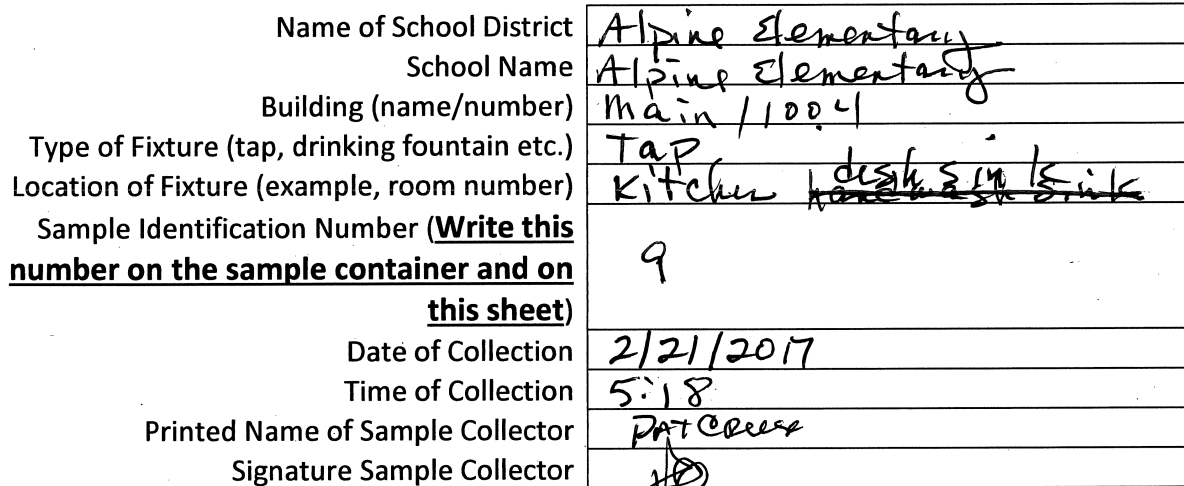 Name of School District Alpine Elementary
School Name Alpine Elementary
Building (name/number) Main / 1004
Type of Fixture (tap, drinking fountain etc.) Tap
Location of Fixture (example, room number) Kitchen dish sink
Sample Identification Number (Write this
number on the sample container and on
this sheet) 9
Date of Collection 2/21/2017
Time of Collection 5:18
Printed Name of Sample Collector PAT
Signature Sample Collector